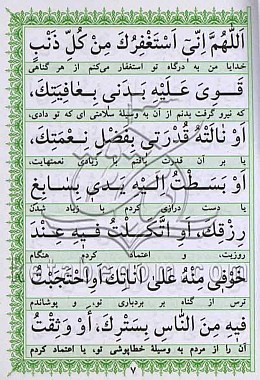 اَللّٰهُمَّ اِنّىٖ اَسْتَغْفِرُكَ مِنْ كُلِّ ذَنْبٍ
خدایا من به درگاه تو استغفار می‌کنم از هر گناهی
قَوِىَ عَلَيْهِ بَدَنى بِعٰافِيَتِكَ،
که نیرو گرفت بدنم از آن به وسیله سلامتی ای که تو دادی،
اَوْ نٰالَتْهُ قُدْرَتى بِفَضْلِ نِعْمَتِكَ،
یا بر آن قدرت یافتم با زیادی نعمتهایت،
اَوْ بَسَطْتُ اِلَيْهِ يَدى بِسٰابِغِ
یا دست درازی کردم با زیاد شدن
رِزْقِكَ، اَوِ اتَّكَلْتُ فيهِ عِنْدَ
روزیت، و اعتماد کردم هنگام
خَوْفى مِنْهُ عَلىٰ اَنٰاتِكَ اَوِ احْتَجَبْتُ
ترس از گناه بر بردباری تو، و پوشاندم
فيهِ مِنَ النّٰاسِ بِسَتْرِكَ، اَوْ وَثِقْتُ
آن را از مردم به وسیله خطاپوشی تو، یا اعتماد کردم
۷